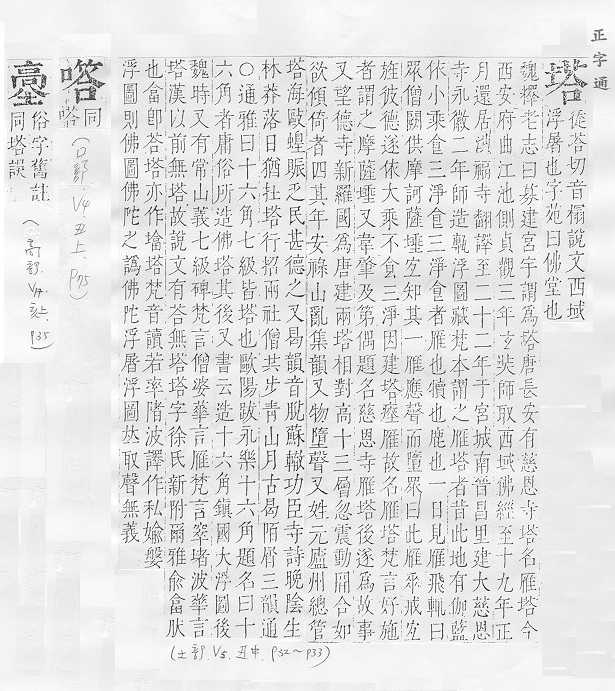 正字通
塔
從荅切音榻說文西域
浮屠也字苑曰佛堂也
魏釋老志曰募建宮宇謂爲塔唐長安有慈恩寺塔名雁塔今
西安府曲江池側貞觀三年玄奘師取西域佛經至十九年正
月還居福寺翻譯至二十二年于宮城南晉昌里建大慈恩
寺永徽二年師造甎浮圖藏梵本謂之雁塔者昔此地有伽藍
依小乘食三淨食三淨食者雁也犢也鹿也一日見雁飛輒曰
眾僧闕供摩訶薩埵宜知其一雁應聲而墮眾曰此雁乘戒宜
旌彼德遂依大乘不食三淨因建塔瘞雁故名雁塔梵言好施
者謂之摩薩埵又韋肇及第偶題名慈恩寺雁塔後遂爲故事
又望德寺新羅國爲唐建兩塔相對高十三層忽震動開合如
欲傾倚者四其年安祿山亂集韻又物墮聲又姓元廬州總管
塔海歐蝗賑乏民甚德之又曷韻音脫蘇轍功臣寺詩晚陰生
林莽落日猶拄塔行招兩社僧共步青山月古曷陌屑三韻通
○通雅曰十六角七級皆塔也歐陽跋永樂十六角題名曰十
六角者庸俗所造佛塔其後又書云造十六角鎮國大浮圖後
魏時又有常山義七級碑梵言僧婆華言雁梵言窣堵波華言
塔漢以前無塔故說文有荅無塔塔字徐氏新附爾雅俞畣肰
也畣卽荅塔亦作墖塔梵音讀若率堵波譯作私婾槃
浮圖則佛圖佛陀之譌佛陀浮屠浮圖𠀤取聲無義
(土部. V5. 丑中. P32～P33)
嗒
同
㗳
(口部. V4 丑上. P75)
俗字舊註
同塔誤
(高部. V4. P35)